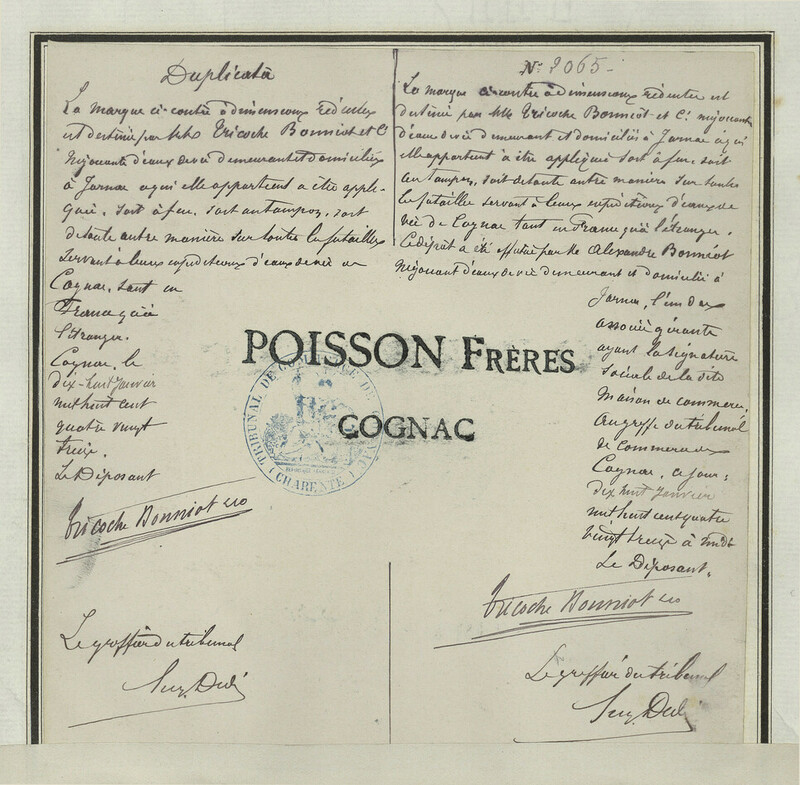 Duplicata
La marque ci-contre à dimensions réduites
est destinée par MM Tricoche Bonniot et Cie
Négociants d'eaux de vie demeurant et domiciliés
à Jarnac à qui elle appartient à être appli-
quée, soit à feu, soit au tampon, soit
de toute autre manière sur toutes les futailles
servant à leurs expéditions d'eaux de vie de
Cognac, tant en
France qu'à
l'étranger.
Cognac, le
dix-huit Janvier
mil huit cent
quatre vingt
treize.
Le Déposant
Tricoche Bonniot &co
Le greffier du tribunal
No 2065-
La marque ci-contre à dimensions réduites est
destinée par MM Tricoche Bonniot et Cie négociants
d'eaux de vie demeurant et domiciliés à Jarnac à qui
elle appartient à être appliquée soit à feu, soit
au tampon, soit de toute autre manière sur toutes
les futailles servant à leurs expéditions d'eaux de
vie de Cognac tant en France qu'à l'étranger.
Le dépôt a été effectué par Mr Alexandre Bonniot
Négociant d'eaux de vie demeurant et domicilié à
Jarnac, l'un des
associés gérants
ayant la signature
sociale de la dite
Maison de commerce,
au greffe du tribunal
de commerce de
Cognac, ce jour:
dix huit Janvier
mil huit cent quatre
vingt treize à midi
Le Déposant,
Tricoche Bonniot &co
Le greffier du tribunal
POISSON FRÈRES
COGNAC
TRIBUNAL DE COMMERCE DE COGNAC
(CHARENTE)